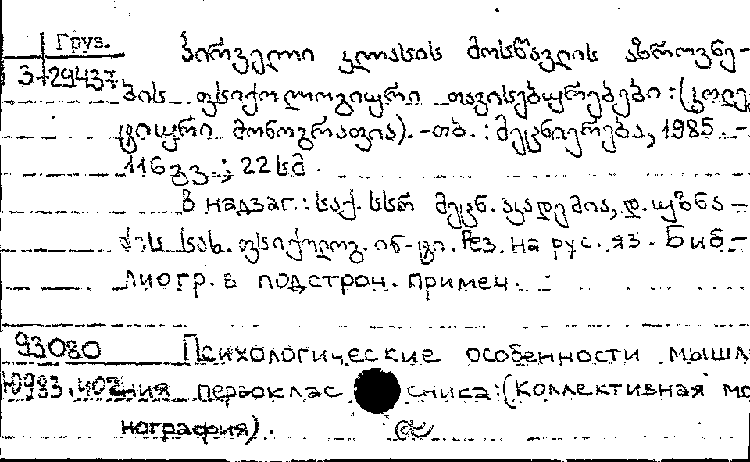 Груз.
3-29437
პირველი კლასის მოსწავლის აზროვნე-
ბის ფსიქოლოგიური თავისებურებები:(კოლექ
ტიური მონოგრაფია).-თბ.:მეცნიერება,1985.-
116გვ.;22სმ.
В надзаг.:საქ.სსრ მეცნ.აკადემია,დ.უზნა-
ძის სახ.ფსიქოლოგ.ინ-ტი.Рез.на рус.яз.Биб-
лиогр.в подстрон.примеч.
93080
Психологические особенности мышл
ния первоклассника:(Коллективная мо
нография).